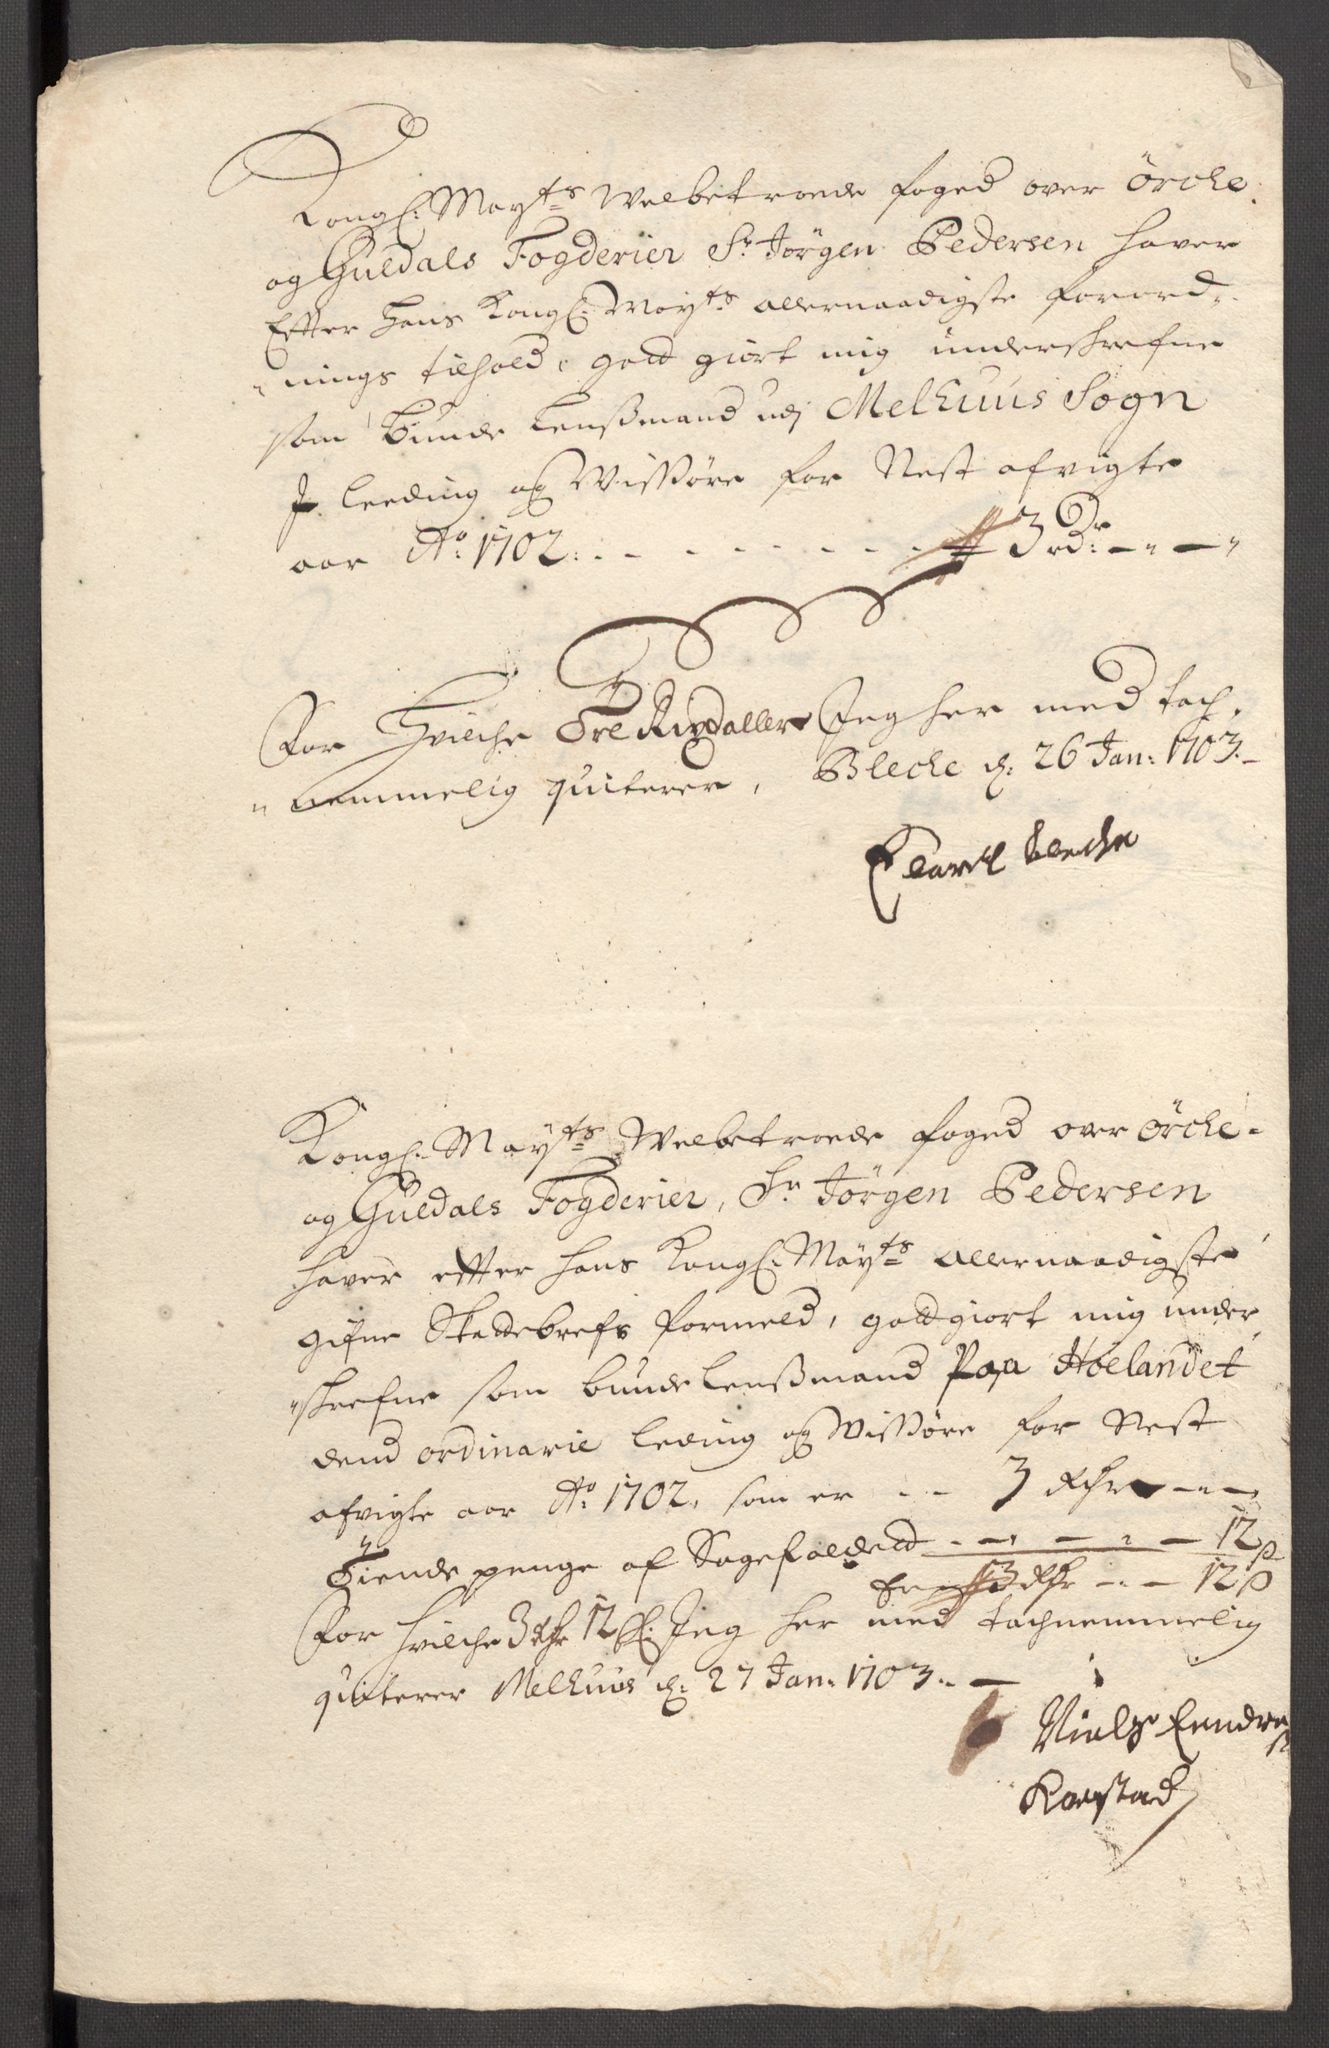 Kongl: Mayts Welbetroede foged over Örche
og Guldals Fogderier Sr Jörgen Pedersen hafver
Efter Hans Kongl: Mayts allernaadigste forord-
nings tilhold, godtgiort mig underskrefne
som bunde Lenßmand udj Melhuus Sogn
J Leeding og Wissöre for Nest afvigte
aar Ao 1702: - - - - - 3 rdr: - " - "
For Hvilche Tre Rixdaller Jeg her med tach-
nemmelig quiterer, Bleche d: 26 Jan: 1703.
bleche
Kongl: Mayts Welbetroede foged over Örche-
og Guldals Fogderier, Sr Jörgen Pedersen
hafver efter hans Kongl: Mayts allernaadigste
gifne Skattebrefs formeld, godtgiort mig under
skrefne som bunde lenßmand Paa Höelandet
dend ordinarie leding og Wissöre for Nest
afvigte aar Ao 1702, som er - - 3 Rdr - -
Tiende penge af Sagefaldet - - - - 12 ß
Er 3 Rdr - - 12 ß
For hvilche 3 Rdr 12 ß: Jeg her med tachnemmelig
quiterer Melhuus d: 27 Jan: 1703. -
Niels